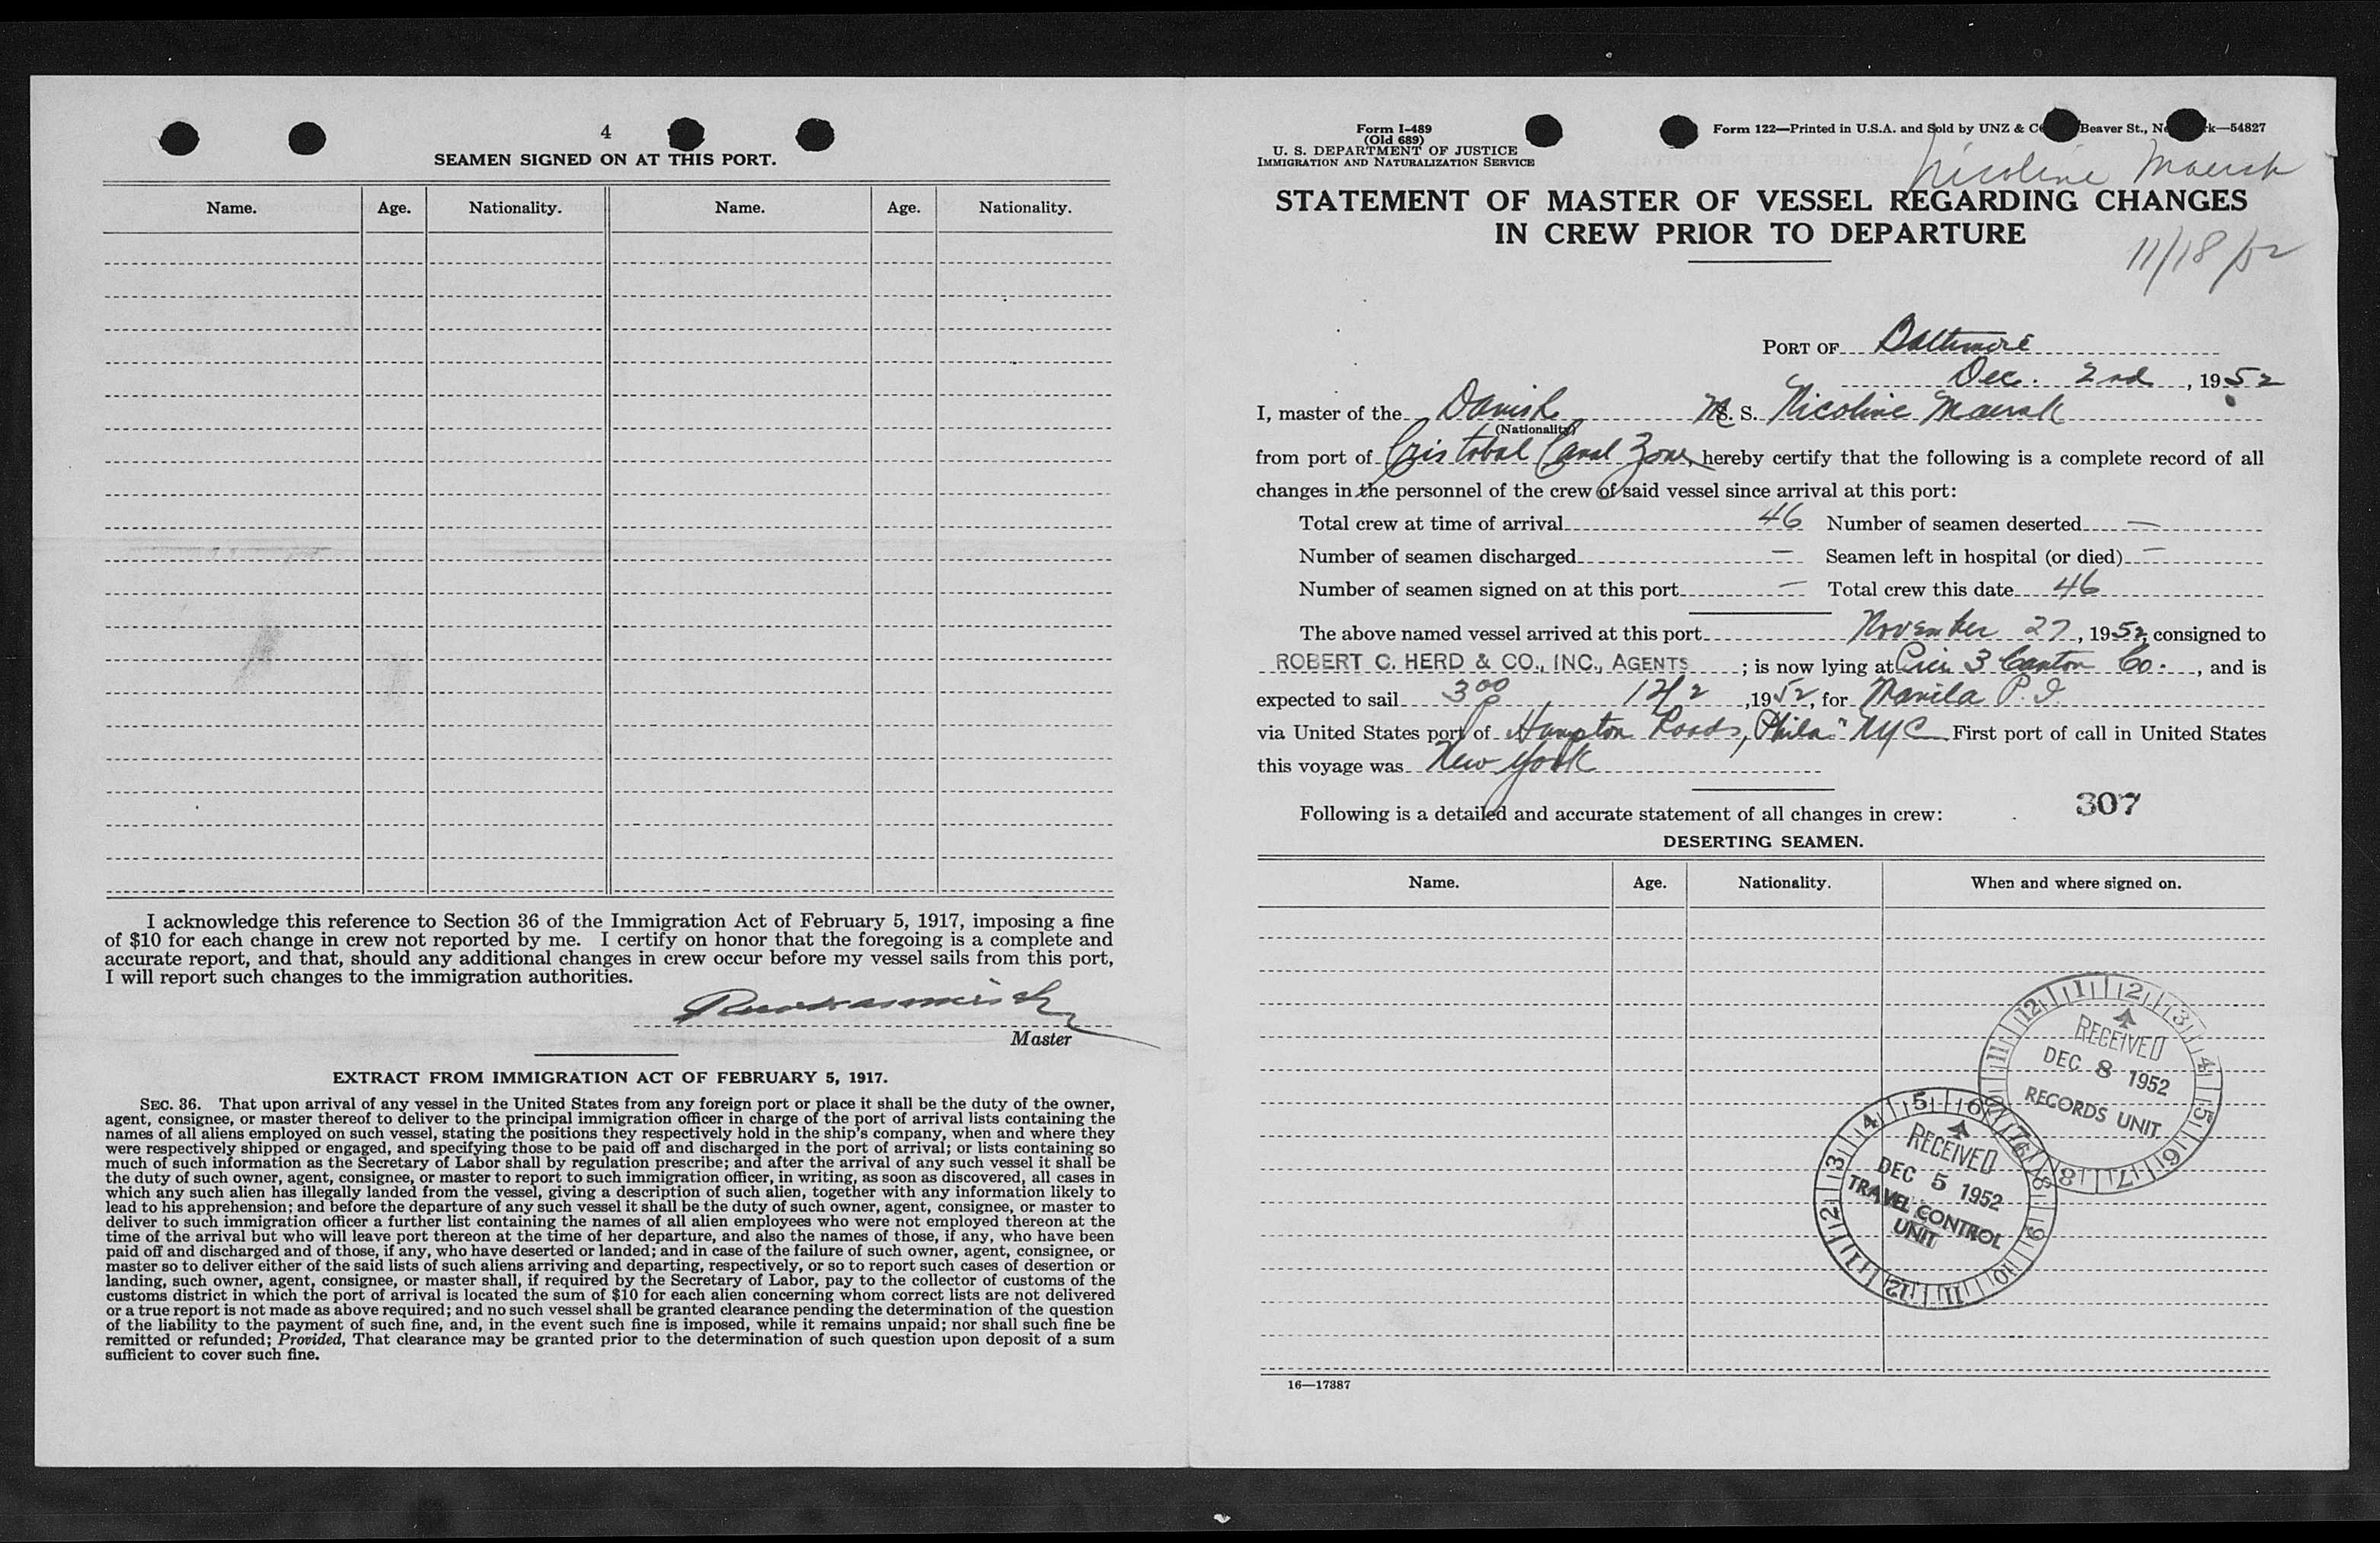 4
SEAMEN SIGNED ON AT THIS PORT.
Name. Age. Nationality. Name. Age. Nationality.
I acknowledge this reference to Section 36 of the Immigration Act of February 5, 1917, imposing a fine
of $10 for each change in crew not reported by me. I certify on honor that the foregoing is a complete and
accurate report, and that, should any additional changes in crew occur before my vessel sails from this port,
I will report such changes to the immigration authorities.
Master
EXTRACT FROM IMMIGRATION ACT OF FEBRUARY 5, 1917.
SEC. 36. That upon arrival of any vessel in the United States from any foreign port or place it shall be the duty of the owner,
agent, consignee, or master thereof to deliver to the principal immigration officer in charge of the port of arrival lists containing the
names of all aliens employed on such vessel, stating the positions they respectively hold in the ship's company, when and where they
were respectively shipped or engaged, and specifying those to be paid off and discharged in the port of arrival; or lists containing so
much of such information as the Secretary of Labor shall by regulation prescribe; and after the arrival of any such vessel it shall be
the duty of such owner, agent, consignee, or master to report to such immigration officer, in writing, as soon as discovered, all cases in
which any such alien has illegally landed from the vessel, giving a description of such alien, together with any information likely to
lead to his apprehension; and before the departure of any such vessel it shall be the duty of such owner, agent, consignee, or master to
deliver to such immigration officer a further list containing the names of all alien employees who were not employed thereon at the
time of the arrival but who will leave port thereon at the time of her departure, and also the names of those, if any, who have been
paid off and discharged and of those, if any, who have deserted or landed; and in case of the failure of such owner, agent, consignee, or
master so to deliver either of the said lists of such aliens arriving and departing, respectively, or so to report such cases of desertion or
landing, such owner, agent, consignee, or master shall, if required by the Secretary of Labor, pay to the collector of customs of the
customs district in which the port of arrival is located the sum of $10 for each alien concerning whom correct lists are not delivered
or a true report is not made as above required; and no such vessel shall be granted clearance pending the determination of the question
of the liability to the payment of such fine, and, in the event such fine is imposed, while it remains unpaid; nor shall such fine be
remitted or refunded; Provided, That clearance may be granted prior to the determination of such question upon deposit of a sum
sufficient to cover such fine.
Form I-489
(Old 689)
U. S. DEPARTMENT OF JUSTICE
IMMIGRATION AND NATURALIZATION SERVICE
Form 122—Printed in U.S.A. and Sold by UNZ & Beaver St., 54827
Nicoline Maersk
STATEMENT OF MASTER OF VESSEL REGARDING CHANGES
IN CREW PRIOR TO DEPARTURE
11/18/52
PORT OF Baltimore
Dec. 2nd, 1952
I, master of the Danish M. S. Nicoline Maersk
(Nationality)
from port of Cristobal Canal Zone, hereby certify that the following is a complete record of all
changes in the personnel of the crew of said vessel since arrival at this port:
Total crew at time of arrival 46 Number of seamen deserted —
Number of seamen discharged — Seamen left in hospital (or died) —
Number of seamen signed on at this port — Total crew this date 46
The above named vessel arrived at this port November 27, 1952, consigned to
ROBERT C. HERD & CO., INC., AGENTS; is now lying at Pier 3 Canton Co., and is
expected to sail 3 00 P 12/2, 1952, for Manila P. I.
via United States port of Hampton Roads, Phila" NYC First port of call in United States
this voyage was New York
Following is a detailed and accurate statement of all changes in crew:
307
DESERTING SEAMEN.
Name. Age. Nationality. When and where signed on.
RECEIVED
DEC 8 1952
RECORDS UNIT
RECEIVED
DEC 5 1952
TRAVEL CONTROL
UNIT
1 2 3 4 5 6 7 8 9 10 11 12
16—17387